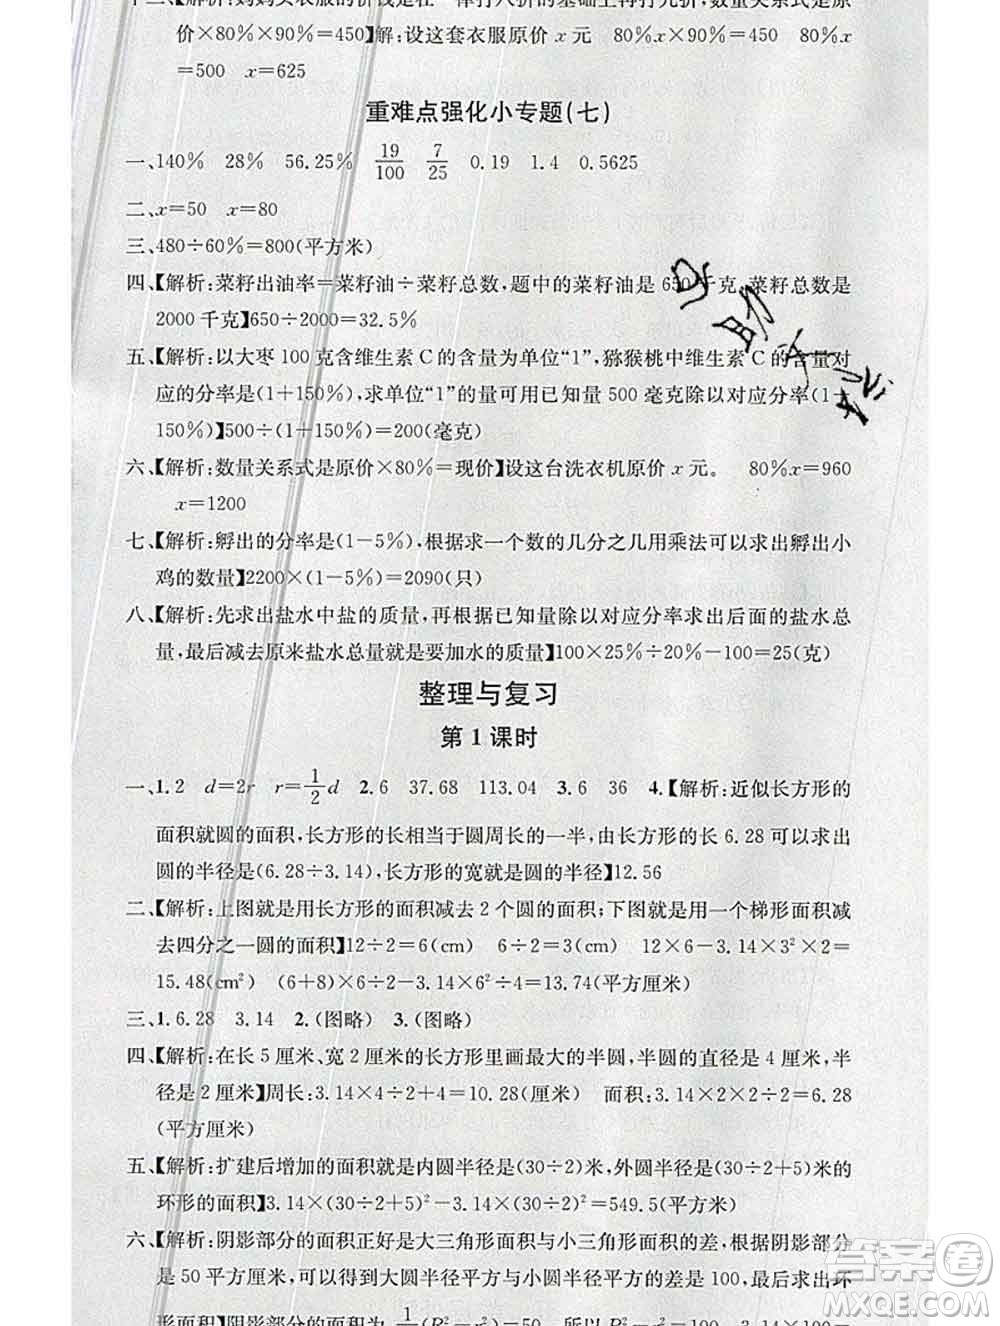 十二、【解析:妈妈买衣服的价钱是在一件打八折的基础上再打九折,数量关系式是原
价×80%×90%=450】解:设这套衣服原价 x 元　80%x×90%=450　80%x
=500　x=625
重难点强化小专题(七)
一、140%　28%　56.25%　19/100　7/25　0.19　1.4　0.5625
二、x=50　x=80
三、480÷60%=800(平方米)
四、【解析:菜籽出油率=菜籽油÷菜籽总数,题中的菜籽油是 650 千克,菜籽总数是
2000 千克】650÷2000=32.5%
五、【解析:以大枣 100 克含维生素 C 的含量为单位“1”,猕猴桃中维生素 C 的含量对
应的分率是(1+150%),求单位“1”的量可以用已知量 500 毫克除以对应分率(1+
150%)】500÷(1+150%)=200(毫克)
六、【解析:数量关系式是原价×80%=现价】设这台洗衣机原价 x 元。　80%x=960
x=1200
七、【解析:孵出的分率是(1-5%),根据求一个数的几分之几用乘法可以求出孵出小
鸡的数量】2200×(1-5%)=2090(只)
八、【解析:先求出盐水中盐的质量,再根据已知量除以对应分率求出后面的盐水总
量,最后减去原来盐水总量就是要加水的质量】100×25%÷20%-100=25(克)
整理与复习
第 1 课时
一、1.2　d=2r　r=1/2d　2.6　37.68　113.04　3.6　36　4.【解析:近似长方形的
面积就圆的面积,长方形的长相当于圆周长的一半,由长方形的长 6.28 可以求出
圆的半径是(6.28÷3.14),长方形的宽就是圆的半径】12.56
二、【解析:上图就是用长方形的面积减去 2 个圆的面积;下图就是用一个梯形面积减
去四分之一圆的面积】12÷2=6(cm)　6÷2=3(cm)　12×6-3.14×3²×2=
15.48(cm²)　(6+8)×6÷2-3.14×6²÷4=13.74(平方厘米)
三、1.6.28　3.14　2.(图略)　3.(图略)
四、【解析:在长 5 厘米、宽 2 厘米的长方形里画最大的半圆,半圆的直径是 4 厘米,半
径是 2 厘米】周长:3.14×4÷2+4=10.28(厘米)　面积:3.14×2×2÷2=6.28
(平方厘米)
五、【解析:扩建后增加的面积就是内圆半径是(30÷2)米,外圆半径是(30÷2+5)米的
环形的面积】3.14×(30÷2+5)²-3.14×(30÷2)²=549.5(平方米)
六、【解析:阴影部分的面积正好是大三角形面积与小三角形面积的差,根据阴影部分
是 50 平方厘米,可以得到大圆半径平方与小圆半径平方的差是 100,最后求出环
形面积】阴影部分的面积为 1/2(R²-r²)=50
答案圈
MXQE.COM